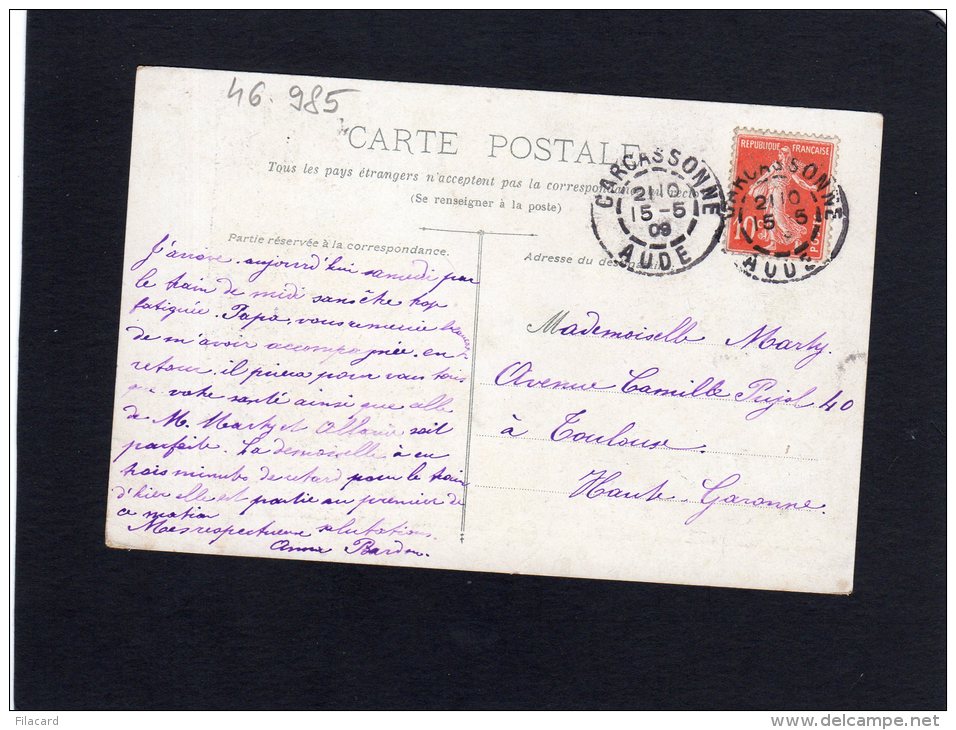 46.985
CARTE POSTALE
Tous les pays étrangers n'acceptent pas la correspondance au recto
(Se renseigner à la poste)
CARCASSONNE
21 10
15 -5
09
AUDE
REPUBLIQUE FRANÇAISE
10c
POSTES
CARCASSONNE
21 10
15 5
AUDE
Partie réservée à la correspondance.
Adresse du destinataire
J'arrive aujourd'hui samedi par
le train de midi sans être trop
fatiguée. Papa, vous remercie beaucoup
de m'avoir accompagnée en
retour, il priera pour vous tous
que votre santé ainsi que celle
de M. Marty et soit
parfaite. La demoiselle à eu
trois minutes de retard pour le train
d'hier elle est partie au premier de
ce matin
Mes respectueuses salutations.
Anna
Mademoiselle Marty.
Avenue Camille Pujol 40
à Toulouse.
Haute-Garonne.
Filacard
www.delcampe.net